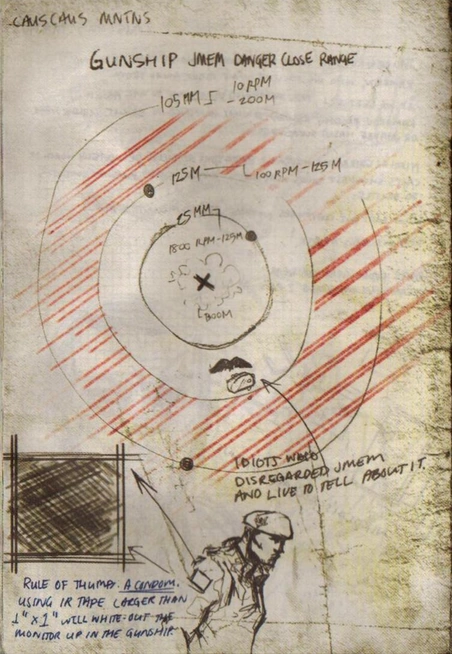 CAUSCAUS MNTNS
GUNSHIP JMEM DANGER CLOSE RANGE
105MM 10 RPM
- 200M
125M 100 RPM - 125M
25MM
1800 RPM - 125M
BOOM
IDIOTS WHO
DISREGARDED JMEM
AND LIVE TO TELL ABOUT IT.
RULE OF THUMB. A CONDOM.
USING IR TAPE LARGER THAN
1" x 1" WILL WHITE-OUT THE
MONITOR UP IN THE GUNSHIP.